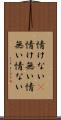 情けない
情け無い情
無い情ない